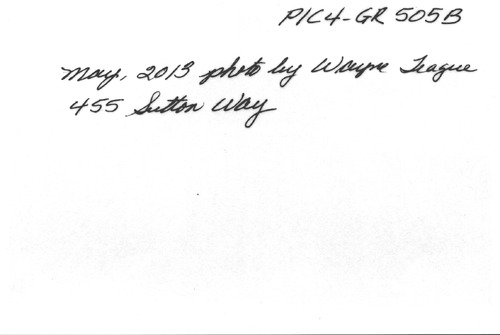 PIC4-GR 505B
May, 2013 photo by Wayne Teague
455 Sutton Way